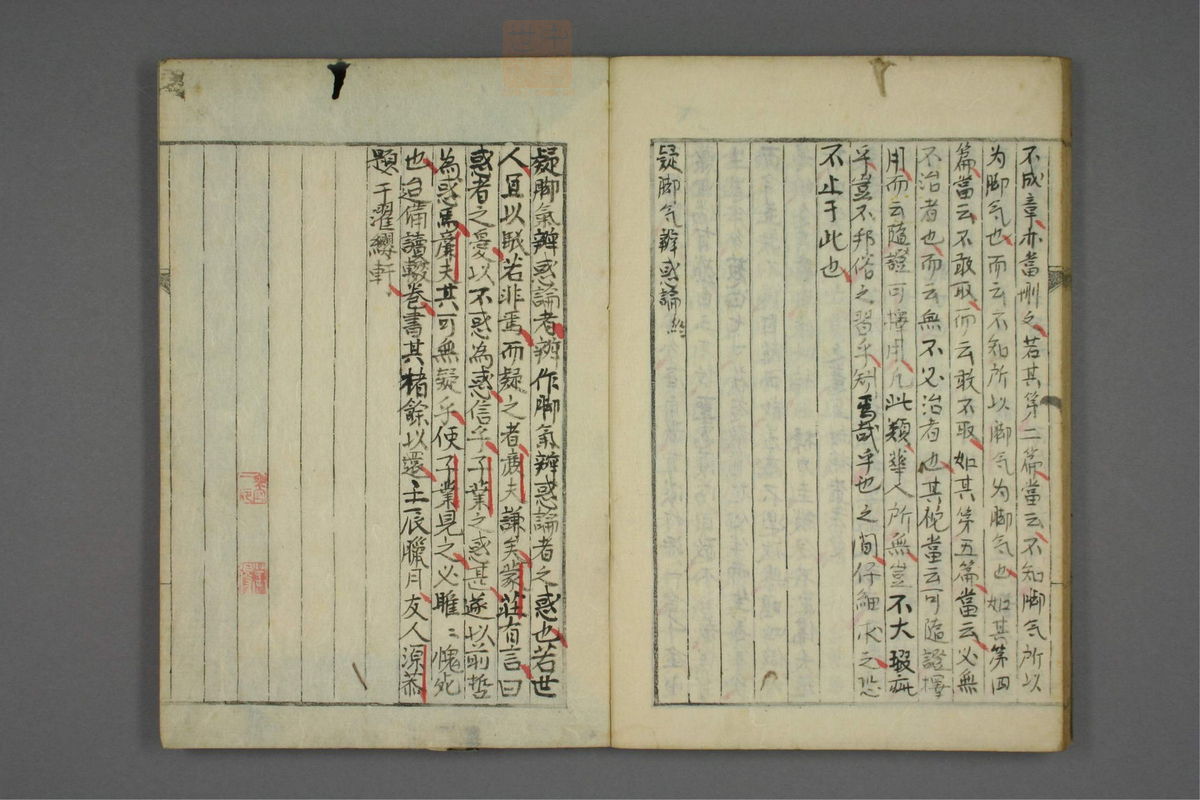 不成章亦當刪之若其第二篇當云不知脚气所以
为脚气也而云不知所以脚气为脚气也如其第四
篇當云不敢取而云敢不取如其第五篇當云必無
不治者也而云無不必治者也其他當云可隨證擇
用而云隨證可擇用凡此類華人所無豈不大瑕疵
乎豈不邦俗之習乎知焉哉乎也之間仔細求之恐
不止于此也
疑脚气辨惑論終
疑脚氣辨惑論者辨作脚氣辨惑論者之惑也若世
人直以眂若非焉而疑之者廣夫謙矣蒙莊有言曰
惑者之憂以不惑為惑信乎子業之惑甚遂以前哲
為惑焉廣夫其可無疑乎使子業見之必睢〻愧死
也迨備讀數卷書其楮餘以還壬辰臘月友人源恭
題于濯纓軒